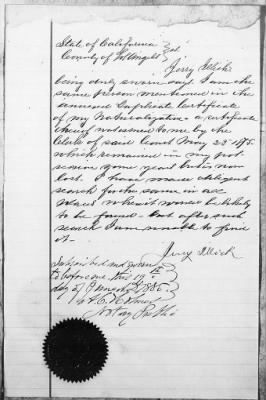 State of California
County of Los Angeles } ss
Jerry Illich
being duly sworn says I am the
same person mentioned in the
annexed Duplicate Certificate
of my Naturalization. a certificate
thereof was issued to me by the
Clerk of said Court May 23
which remained in my pos-
session some years but is now
lost. I have made diligent
search for the same in all
places where it would be likely
to be found but after such
search I am unable to find
it.
Jerry Illich
Subscribed and sworn
to before me this 19th
day of 1886
Notary Public